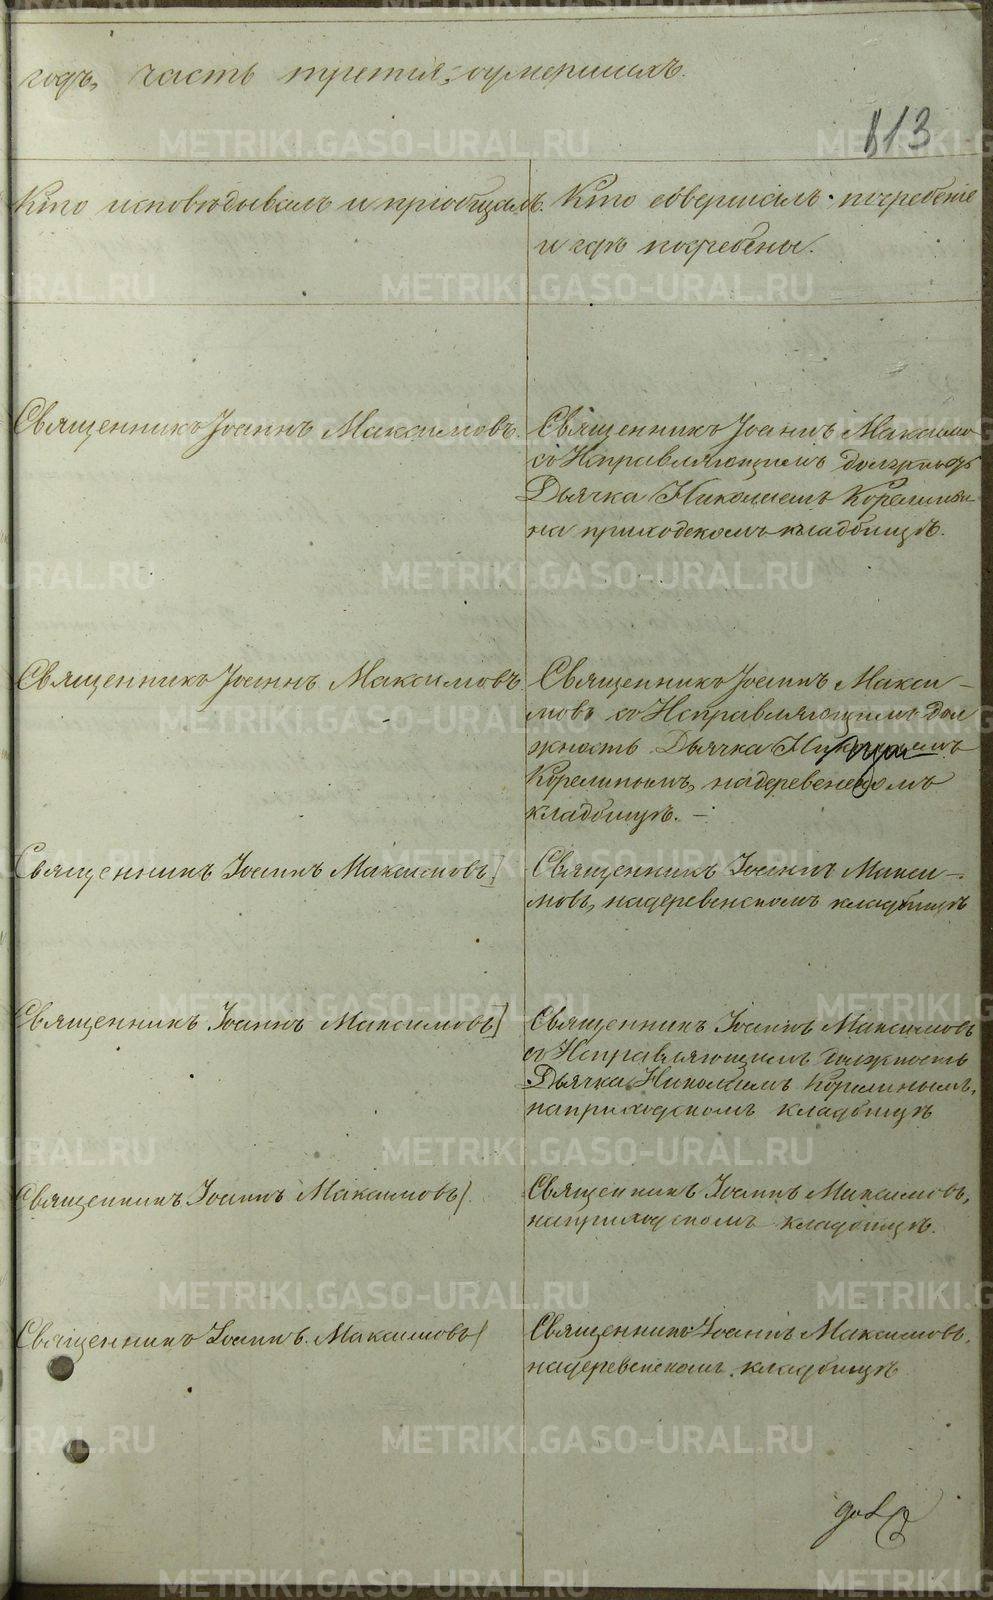 годъ, часть третія, о умершихъ.
113
Кто исповѣдывалъ и пріобщалъ.
Кто совершалъ погребеніе
и гдѣ погребены.
Священникъ Іоаннъ Максимовъ.
Священникъ Іоаннъ Максимо
со Исправляющимъ должность
Дьячка Николаемъ Корелины
на приходскомъ кладбищѣ.
Священникъ Іоаннъ Максимовъ
Священникъ Іоаннъ Макси-
мовъ со Исправляющимъ дол
жность Дьячка Николаемъ
Корелинымъ, на деревенскомъ
кладбищѣ. —
Священникъ Іоаннъ Максимовъ
Священникъ Іоаннъ Макси-
мовъ, на деревенскомъ кладбищѣ
Священникъ Іоаннъ Максимовъ
Священникъ Іоаннъ Максимовъ
со Исправляющимъ должность
Дьячка Николаемъ Корелинымъ,
на приходскомъ кладбищѣ
Священникъ Іоаннъ Максимовъ.
Священникъ Іоаннъ Максимовъ,
на приходскомъ кладбищѣ.
Священникъ Іоаннъ Максимовъ
Священникъ Іоаннъ Максимовъ,
на деревенскомъ кладбищѣ
METRIKI.GASO-URAL.RU